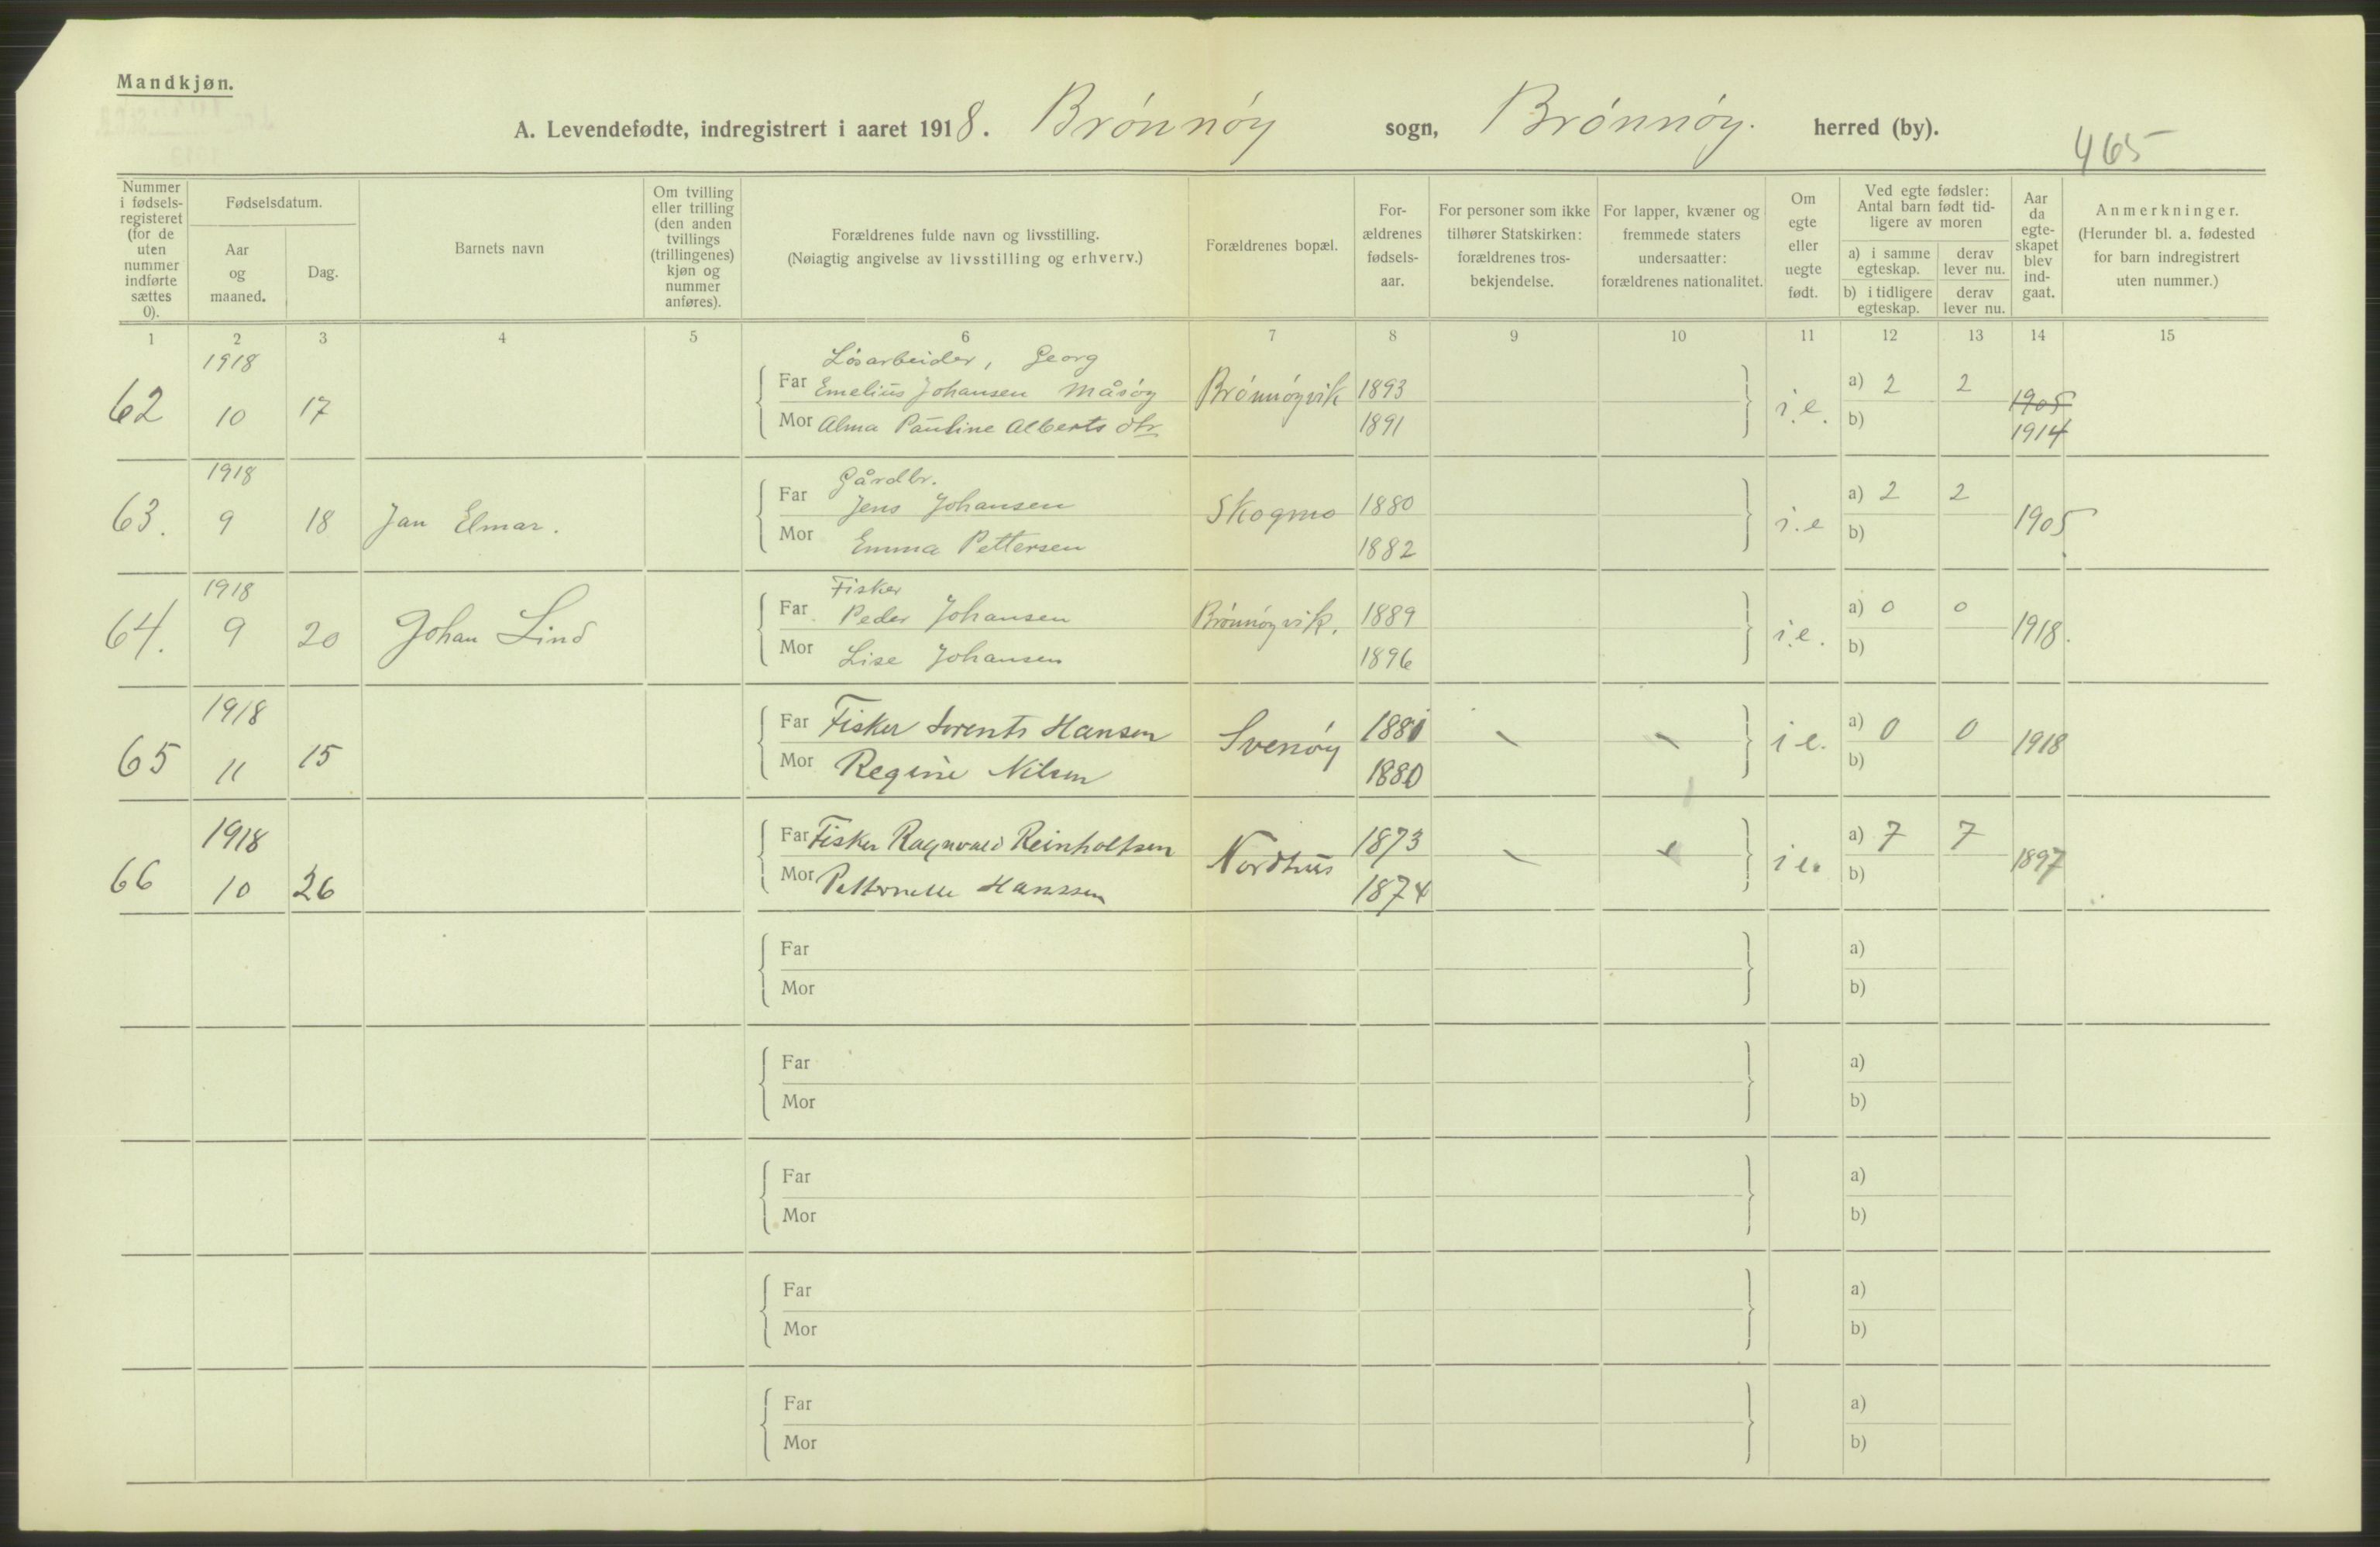 Mandkjøn.
A. Levendefødte, indregistrert i aaret 1918. Brønnøy sogn, Brønnøy. herred (by).
465
Nummer i fødsels-registeret (for de uten nummer indførte sættes 0).
Fødselsdatum.
Aar og maaned.
Dag.
Barnets navn
Om tvilling eller trilling (den anden tvillings (trillingenes) kjøn og nummer anføres).
Forældrenes fulde navn og livsstilling.
(Nøiagtig angivelse av livsstilling og erhverv.)
Forældrenes bopæl.
For-ældrenes fødsels-aar.
For personer som ikke tilhører Statskirken: forældrenes tros-bekjendelse.
For lapper, kvæner og fremmede staters undersaatter: forældrenes nationalitet.
Om egte eller uegte født.
Ved egte fødsler: Antal barn født tid-ligere av moren
a) i samme egteskap. derav lever nu.
b) i tidligere egteskap. derav lever nu.
Aar da egte-skapet blev ind-gaat.
Anmerkninger.
(Herunder bl. a. fødested for barn indregistrert uten nummer.)
1 2 3 4 5 6 7 8 9 10 11 12 13 14 15
1918 Løsarbeider, Georg
62 10 17 Far Emelius Johansen Måsøy Brønnøyvik 1893 i.e. a) 2 2 1905
Mor Alma Pauline Alberts dtr 1891 b) 1914
1918 Gårdbr.
63. 9 18 Jan Elmar. Far Jens Johansen Skogmo 1880 i.e a) 2 2 1905
Mor Emma Pettersen 1882 b)
1918 Fisker
64. 9 20 Johan Lind Far Peder Johansen Brønnøyvik. 1889 i.e. a) 0 0 1918.
Mor Lise Johansen 1896 b)
1918 Far Fisker Lorents Hansen Svenøy 1881 i e. a) 0 0 1918
65 11 15 Mor Regine Nilsen 1880 b)
1918 Far Fisker Ragnvald Reinholtsen Nordhus 1873 i e. a) 7 7 1897
66 10 26 Mor Petternelle Hanssen 1874 b)
Far a)
Mor b)
Far a)
Mor b)
Far a)
Mor b)
Far a)
Mor b)
Far a)
Mor b)